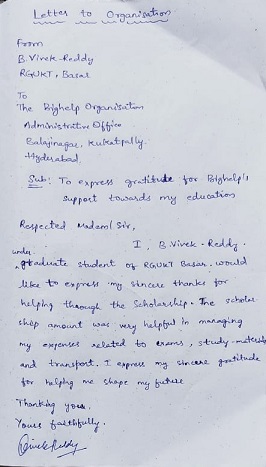 Letter to Organisation
From
B. Vivek-Reddy
RGUKT, Basar
To
The Bighelp Organisation
Administrative Office
Balajinagar, Kukatpally.
Hyderabad.
Sub: To express gratitude for Bighelp's
support towards my education
Respected Madam/Sir,
I, B. Vivek-Reddy.
under
graduate student of RGUKT Basar. would
like to express my sincere thanks for
helping through the Scholarship. The scholar
ship amount was very helpful in managing
my expenses related to exams, study-materials
and transport. I express my sincere gratitude
for helping me shape my future
Thanking you.
Yours faithfully.
VivekReddy